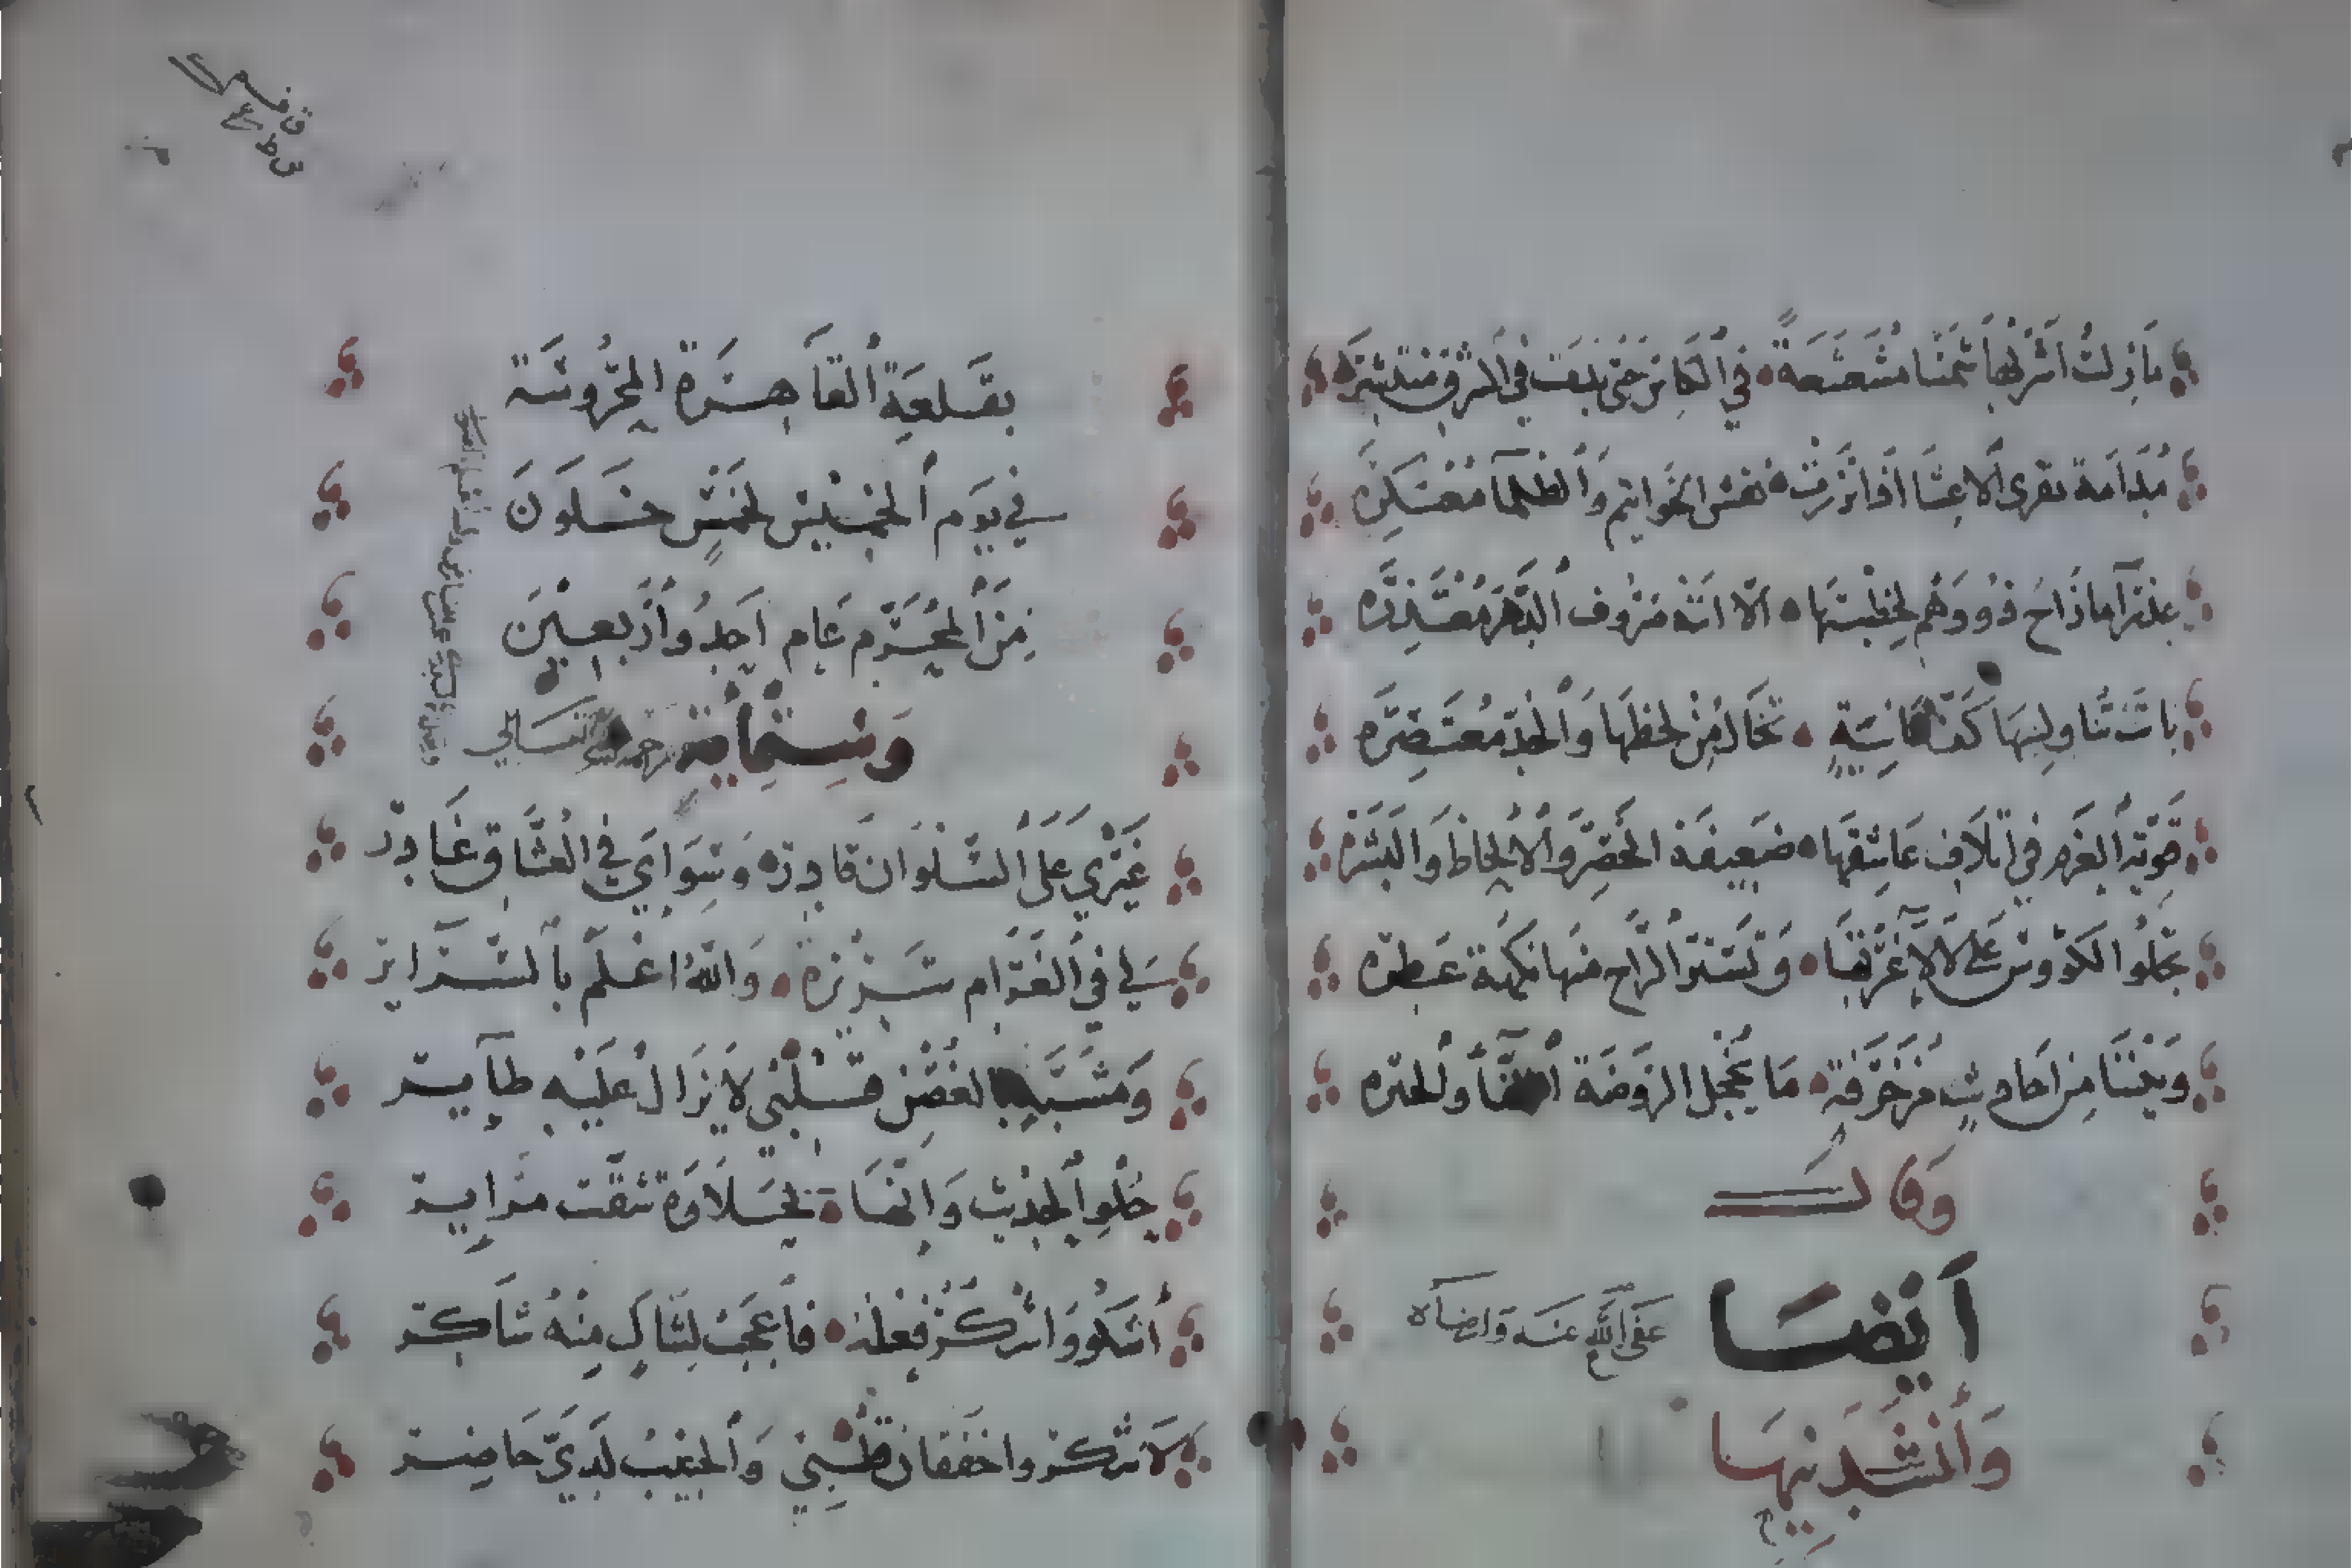 ما زلت أشربها شمسا مشعشعة في الكاس حتى بدت في الشرق منتشره
مدامة تقرى الاعشا اذا نزفت نقش الخواتم والظلمآ معتكره
عذرآ ما زاح ذو وهم لخطبتها الا اتته صروف الدهر معتذره
باتت تناولنيها كف آنسة تخال من لحظها والخد معتصره
قوية العزم في اتلاف عاشقها ضعيفة الخصر والالحاظ والبشره
تجلوا الكووس على لالاء غرتها وتستر الراح منها نكهة عطره
ويجتنا من احاديث مزخرفة ما يخجل الروضة الغنا والحبره
وقال
أيضا عفى الله عنه وارضاه
وأنشدنيها
بقلعة القاهرة المحروسة
في يوم الخميس لخمس خلون
من المحرم عام احد وأربعين
وستماية
غيري على السلوان قادر وسواي في العشاق غادر
لي في الغرام سريرة والله اعلم بالسراير
ومشبه بالغصن قلبي لا يزال عليه طآير
حلو الحديث وانها لحلاوة شقت مراير
أشكو واشكر فعله فاعجب لشاك منه شاكر
لا تنكروا خفقان قلبي والحبيب لدي حاضر